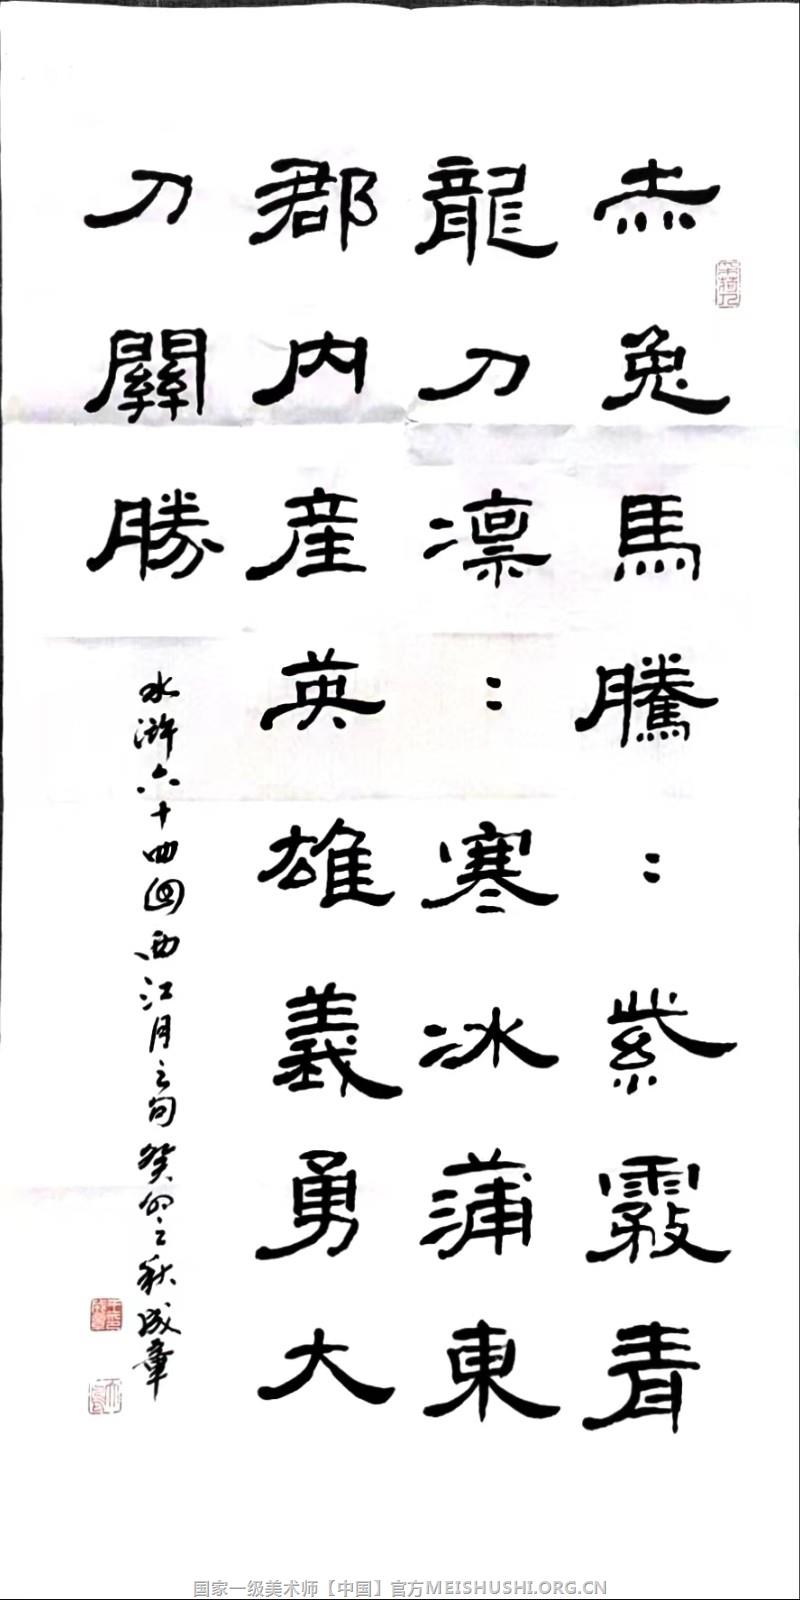 赤兔馬騰：紫霧青
龍刀凛：寒冰蒲東
郡内産英雄義勇大
刀關勝
水滸六十四回西江月之句癸卯之秋成章
国家一级美术师【中国】官方MEISHUSHI.ORG.CN